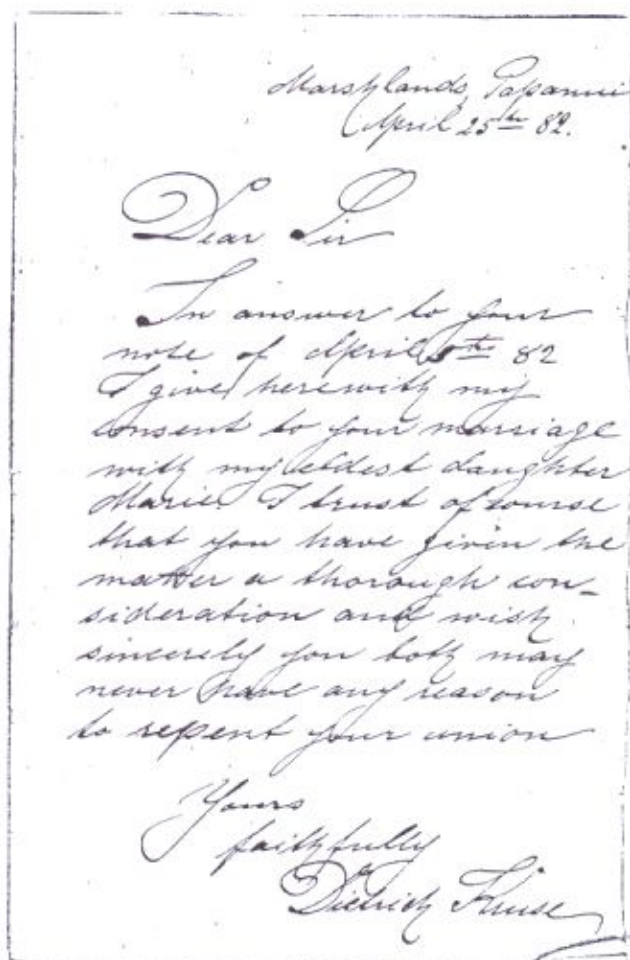 Marshlands, Papanui
April 25th 82.
Dear Sir
In answer to your
note of April 82
I give herewith my
consent to your marriage
with my eldest daughter
Marie. I trust of course
that you have given the
matter a thorough con-
sideration and wish
sincerely you both may
never have any reason
to repent your union
Yours
faithfully
Dietrich Kruse